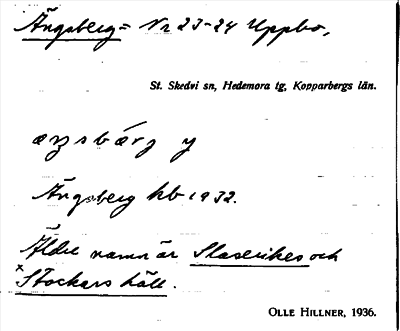 Ängsberg = Nr 23-24 Uppbo,
St. Skedvi sn, Hedemora tg, Kopparbergs län.
y
Ängsberg kb 1932.
Äldre namn är Slaserikes och
x Stockars häll.
OLLE HILLNER, 1936.